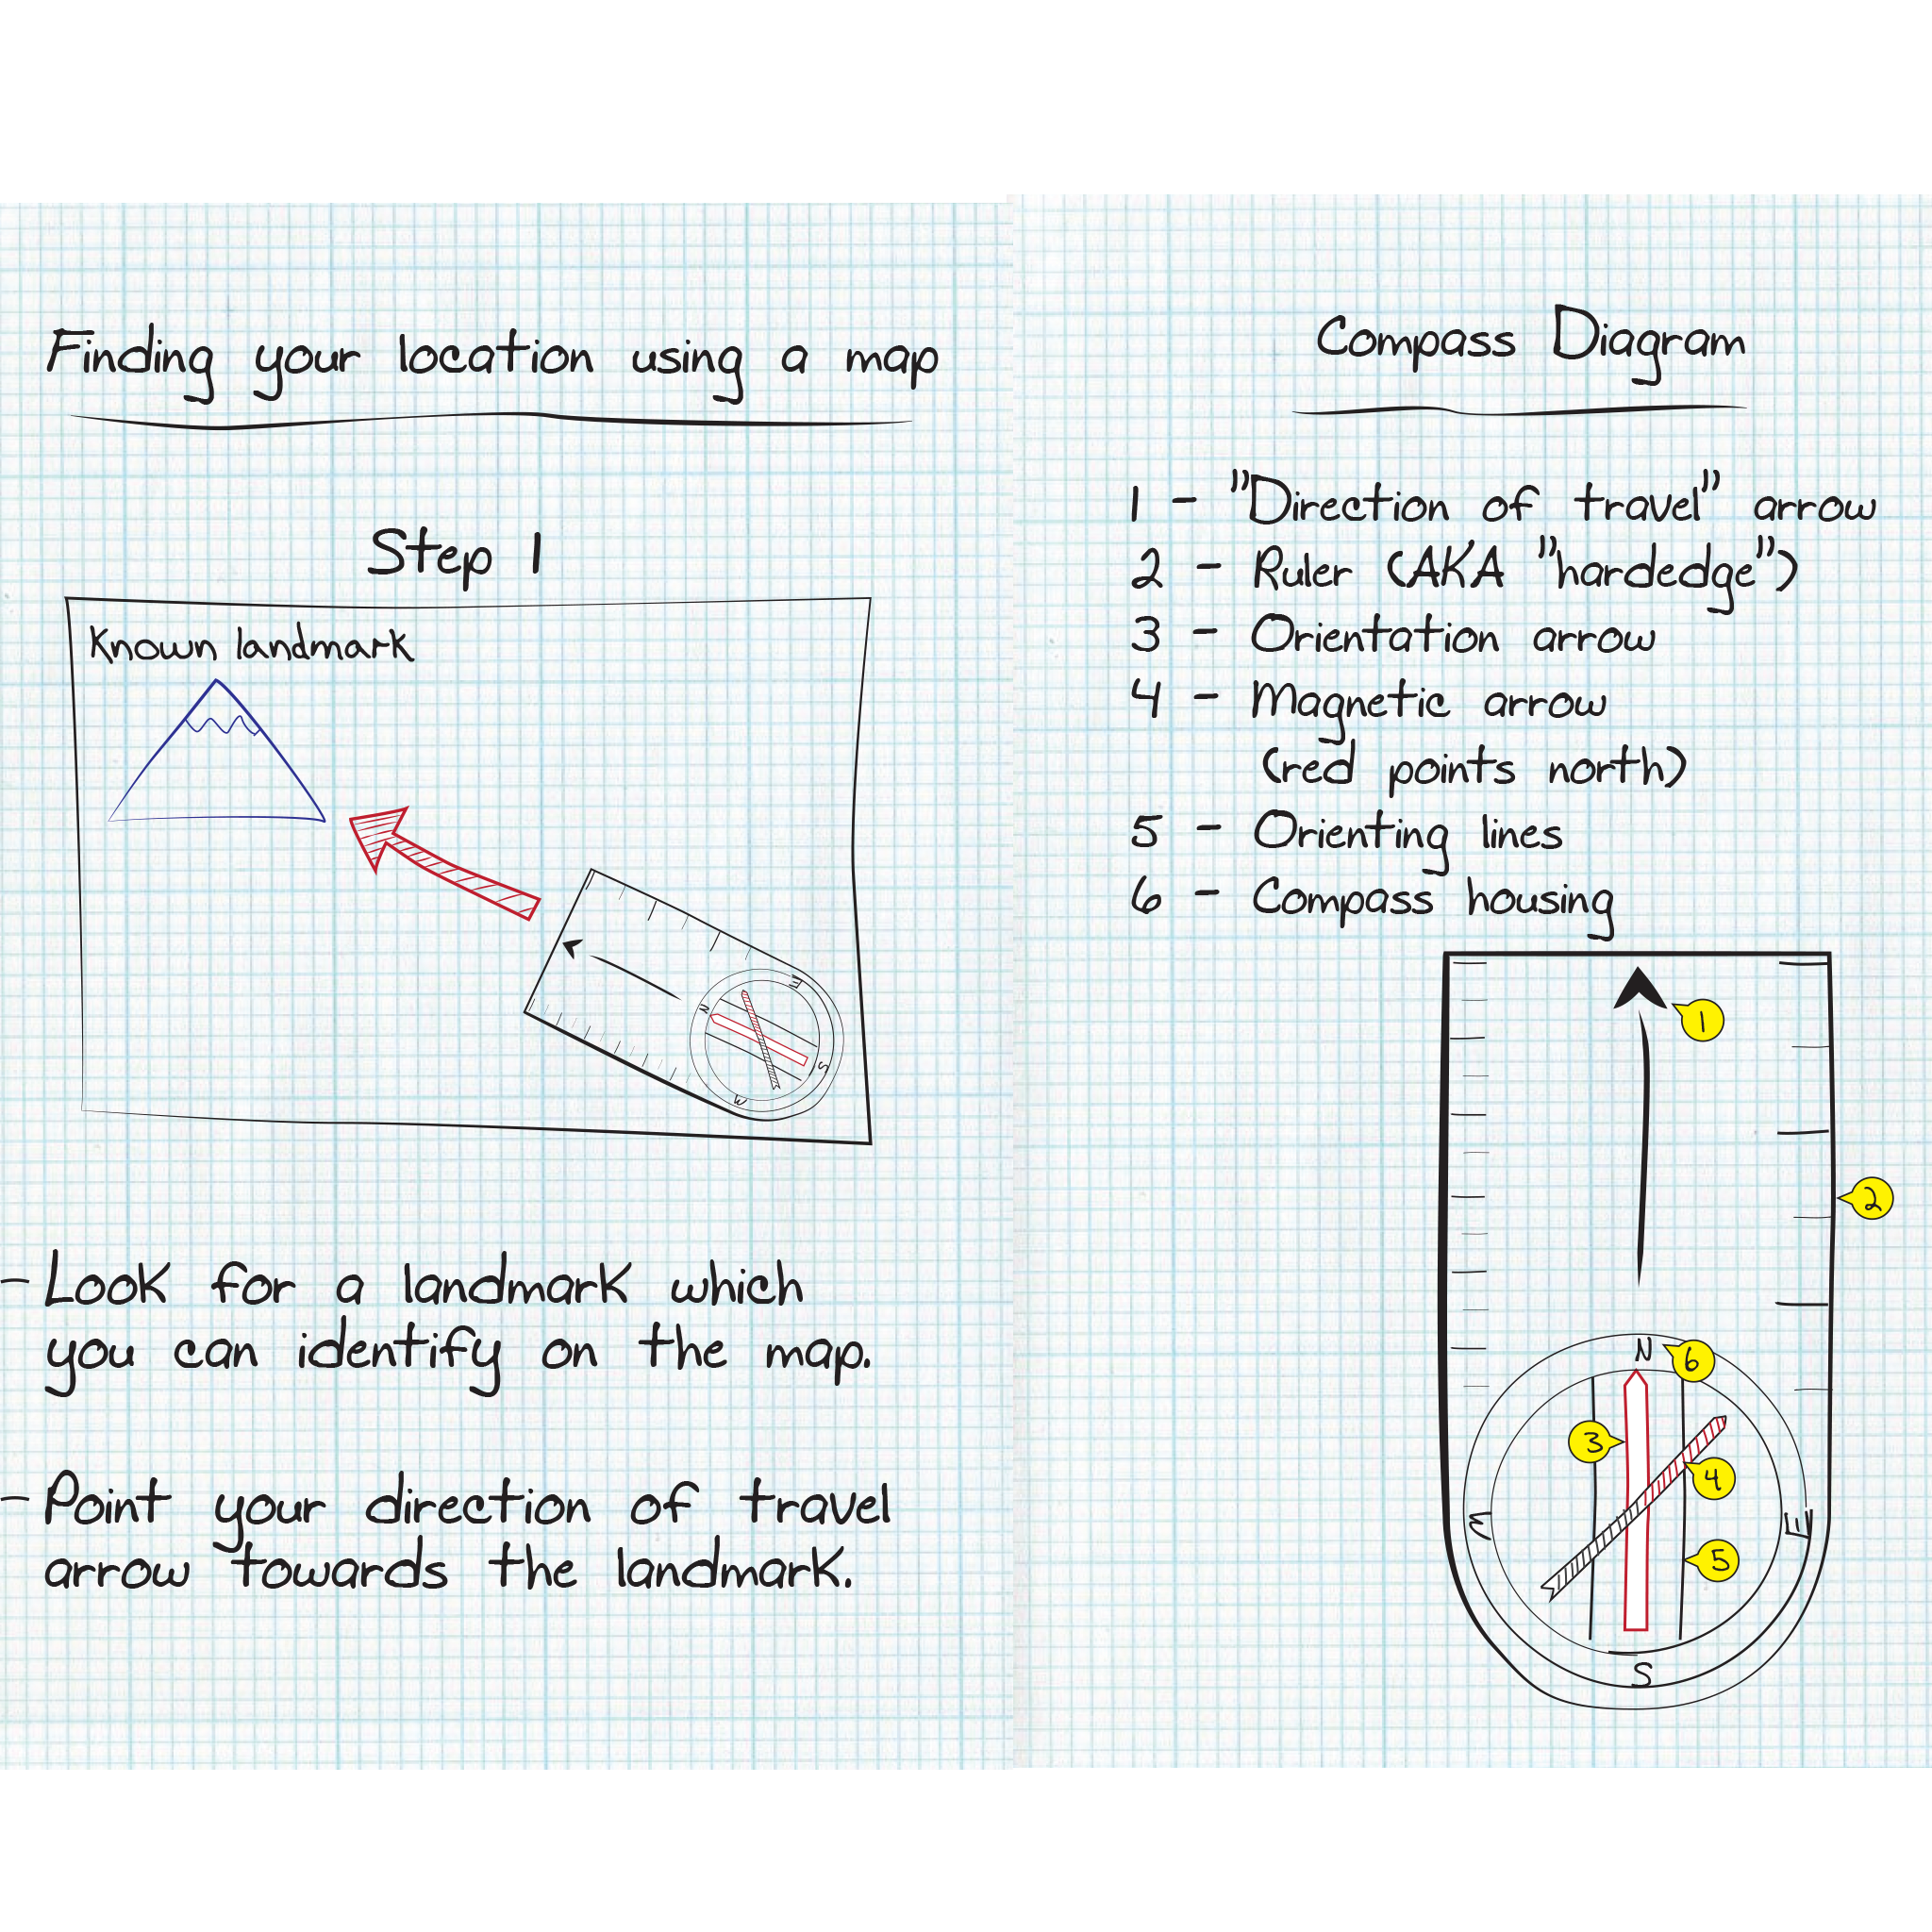 Finding your location using a map
Step 1
Known landmark
N
E
S
W
- Look for a landmark which
you can identify on the map.
- Point your direction of travel
arrow towards the landmark.
Compass Diagram
1 - "Direction of travel" arrow
2 - Ruler (AKA "hardedge")
3 - Orientation arrow
4 - Magnetic arrow
(red points north)
5 - Orienting lines
6 - Compass housing
1
2
N
6
3
4
W
E
5
S